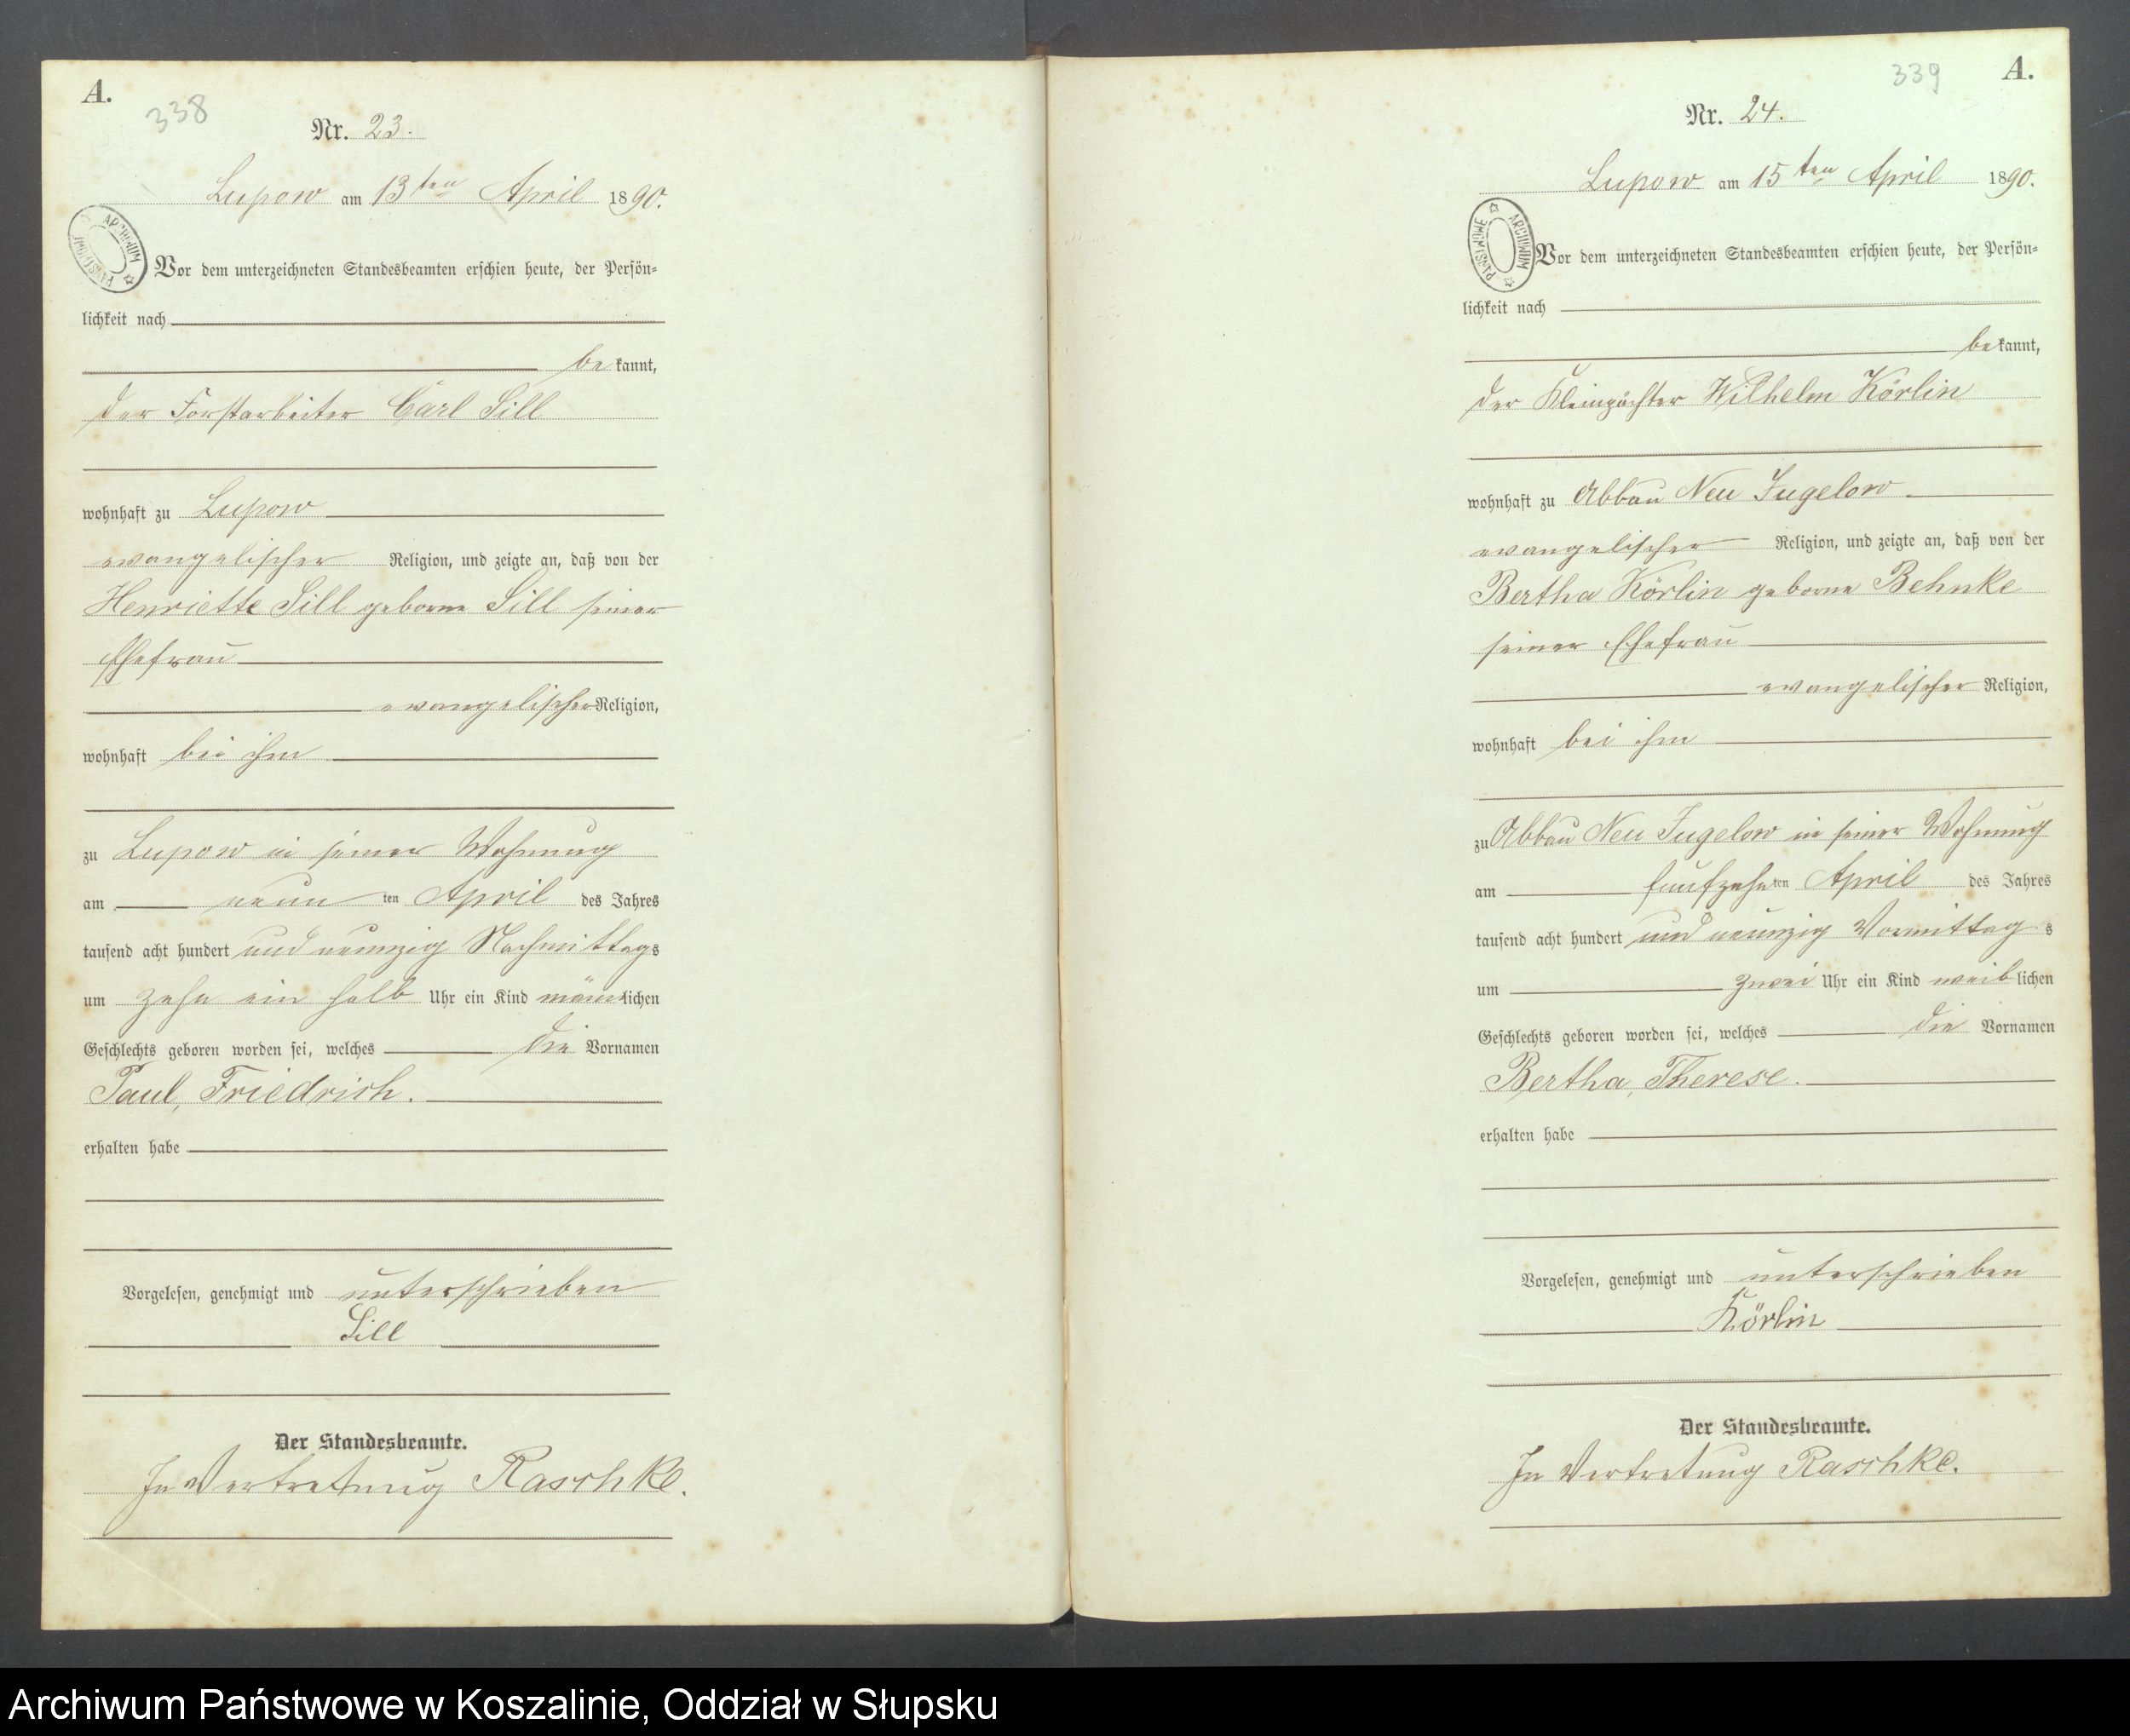 A.
338
Nr. 23.
Lupow am 13ten April 1890.
ARCHIWUM PAŃSTWOWE
Vor dem unterzeichneten Standesbeamten erschien heute, der Persön=
lichkeit nach
be kannt,
der Forstarbeiter Carl Sill
wohnhaft zu Lupow
evangelischer Religion, und zeigte an, daß von der
Henriette Sill geborne Sill seiner
Ehefrau
evangelischer Religion,
wohnhaft bei ihm
zu Lupow in seiner Wohnung
am neun ten April des Jahres
tausend acht hundert und neunzig Nachmittags
um zehn ein halb Uhr ein Kind männlichen
Geschlechts geboren worden sei, welches die Vornamen
Paul, Friedrich.
erhalten habe
Vorgelesen, genehmigt und unterschrieben
Sill
Der Standesbeamte.
In Vertretung Raschke.
339
A.
Nr. 24.
Lupow am 15ten April 1890.
ARCHIWUM PAŃSTWOWE
Vor dem unterzeichneten Standesbeamten erschien heute, der Persön=
lichkeit nach
bekannt,
der Kleinpächter Wilhelm Körlin
wohnhaft zu Abbau Neu Jugelow
evangelischer Religion, und zeigte an, daß von der
Bertha Körlin geborne Behnke
seiner Ehefrau
evangelischer Religion,
wohnhaft bei ihm
zu Abbau Neu Jugelow in seiner Wohnung
am fünfzehnten April des Jahres
tausend acht hundert und neunzig Vormittags
um zwei Uhr ein Kind weiblichen
Geschlechts geboren worden sei, welches die Vornamen
Bertha, Therese.
erhalten habe
Vorgelesen, genehmigt und unterschrieben
Körlin
Der Standesbeamte.
In Vertretung Raschke.
Archiwum Państwowe w Koszalinie, Oddział w Słupsku